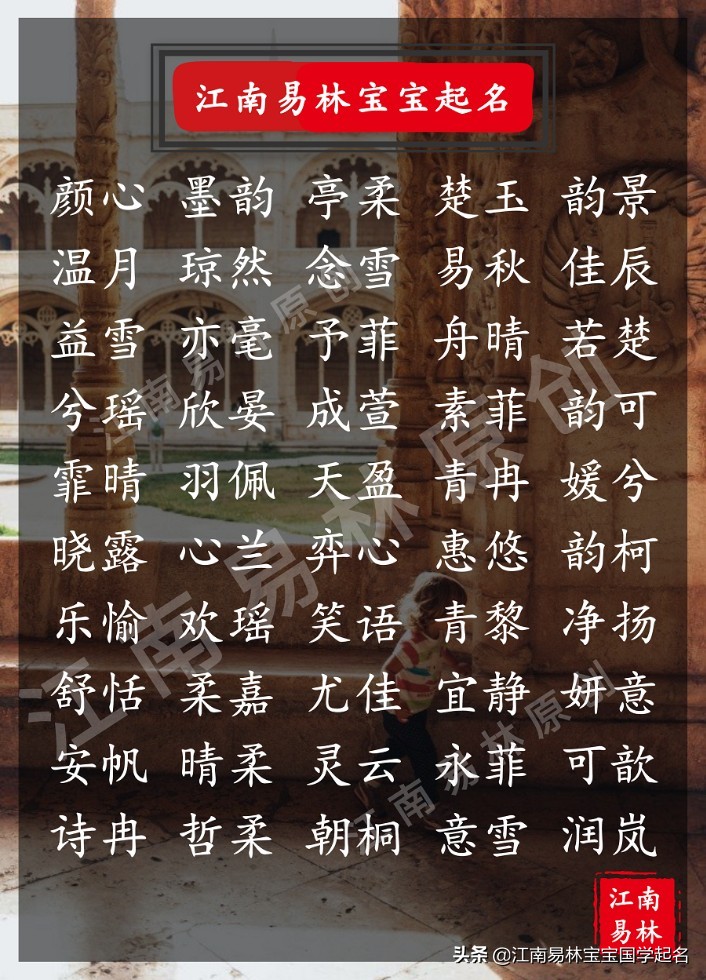 江南易林宝宝起名
颜心 墨韵 亭柔 楚玉 韵景
温月 琼然 念雪 易秋 佳辰
益雪 亦毫 予菲 舟晴 若楚
兮瑶 欣晏 成萱 素菲 韵可
霏晴 羽佩 天盈 青冉 媛兮
晓露 心兰 弈心 惠悠 韵柯
乐愉 欢瑶 笑语 青黎 净扬
舒恬 柔嘉 尤佳 宜静 妍意
安帆 晴柔 灵云 永菲 可歆
诗冉 哲柔 朝桐 意雪 润岚
江南易林原创
江南易林原创
江南易林原创
江南
易林
头条 @江南易林宝宝国学起名